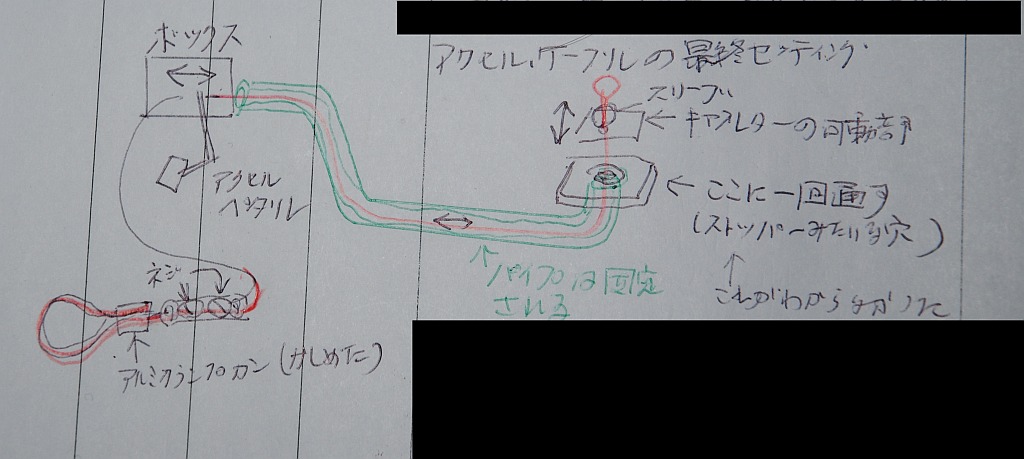 ボックス
アクセル、ケーブルの最終セッティング
スリーブ
キャブレターの可動部
アクセル
ペダル
ここに一回通す
(ストッパーみたいな穴)
パイプは固定
される
これがわからなかった
ネジ
アルミクランプカン(かしめた)